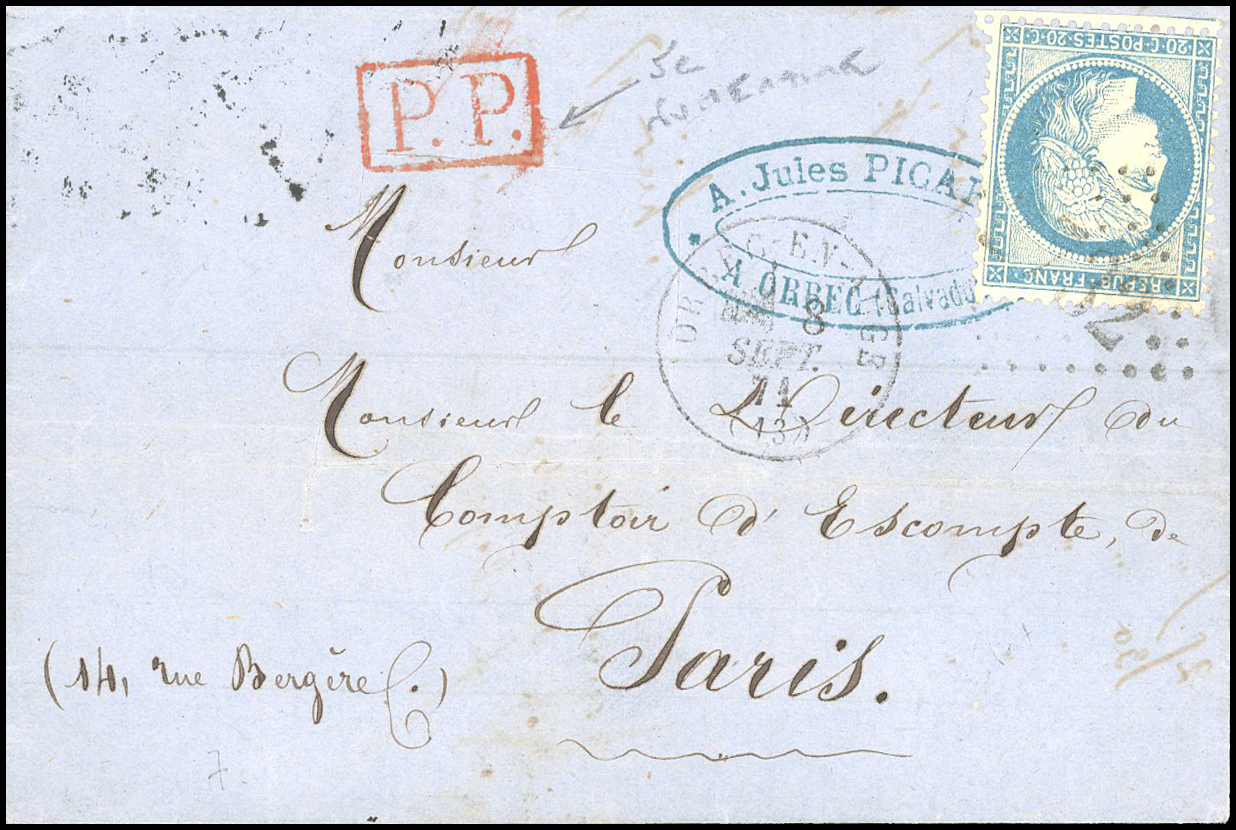 P.P.
5c
NUMERAIRE
A. Jules PICAR
A ORBEC (Calvado
ORBEC-EN-AUGE
8
SEPT.
71
(13)
20·C·POSTES·20·C
REPUB·FRANC·
2
Monsieur
Monsieur le Directeur du
Comptoir d'Escompte, de
Paris.
(14, rue Bergère.)
7